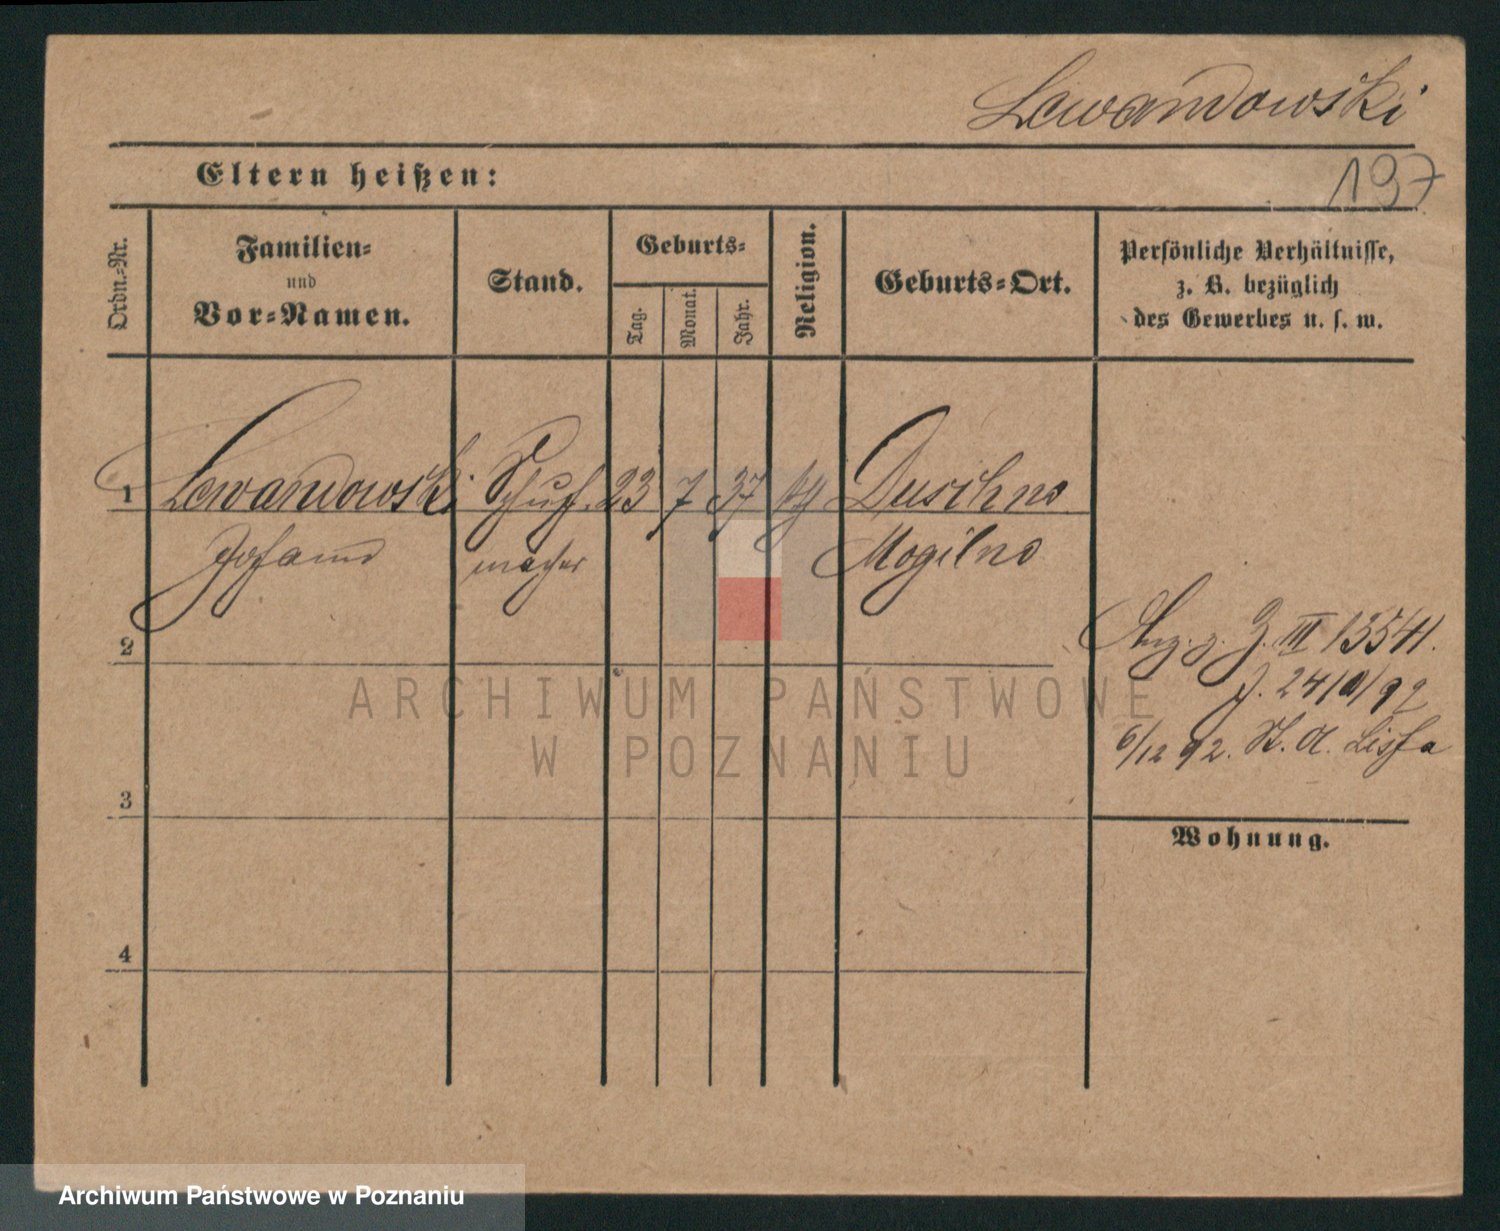 Lewandowski
197
Eltern heißen:
Ordn.-Nr.
Familien-
und
Vor-Namen.
Stand.
Geburts-
Tag.
Monat.
Jahr.
Religion.
Geburts-Ort.
Persönliche Verhältnisse,
z. B. bezüglich
des Gewerbes u. s. w.
1 Lewandowski Schuh- 23 7 37 Duschno
Johann macher Mogilno
2
Anz. z. Z. III 13541.
J. 24/10/92
6/12 92. St. A. Lissa
3
Wohnung.
4
ARCHIWUM PAŃSTWOWE
W POZNANIU
Archiwum Państwowe w Poznaniu